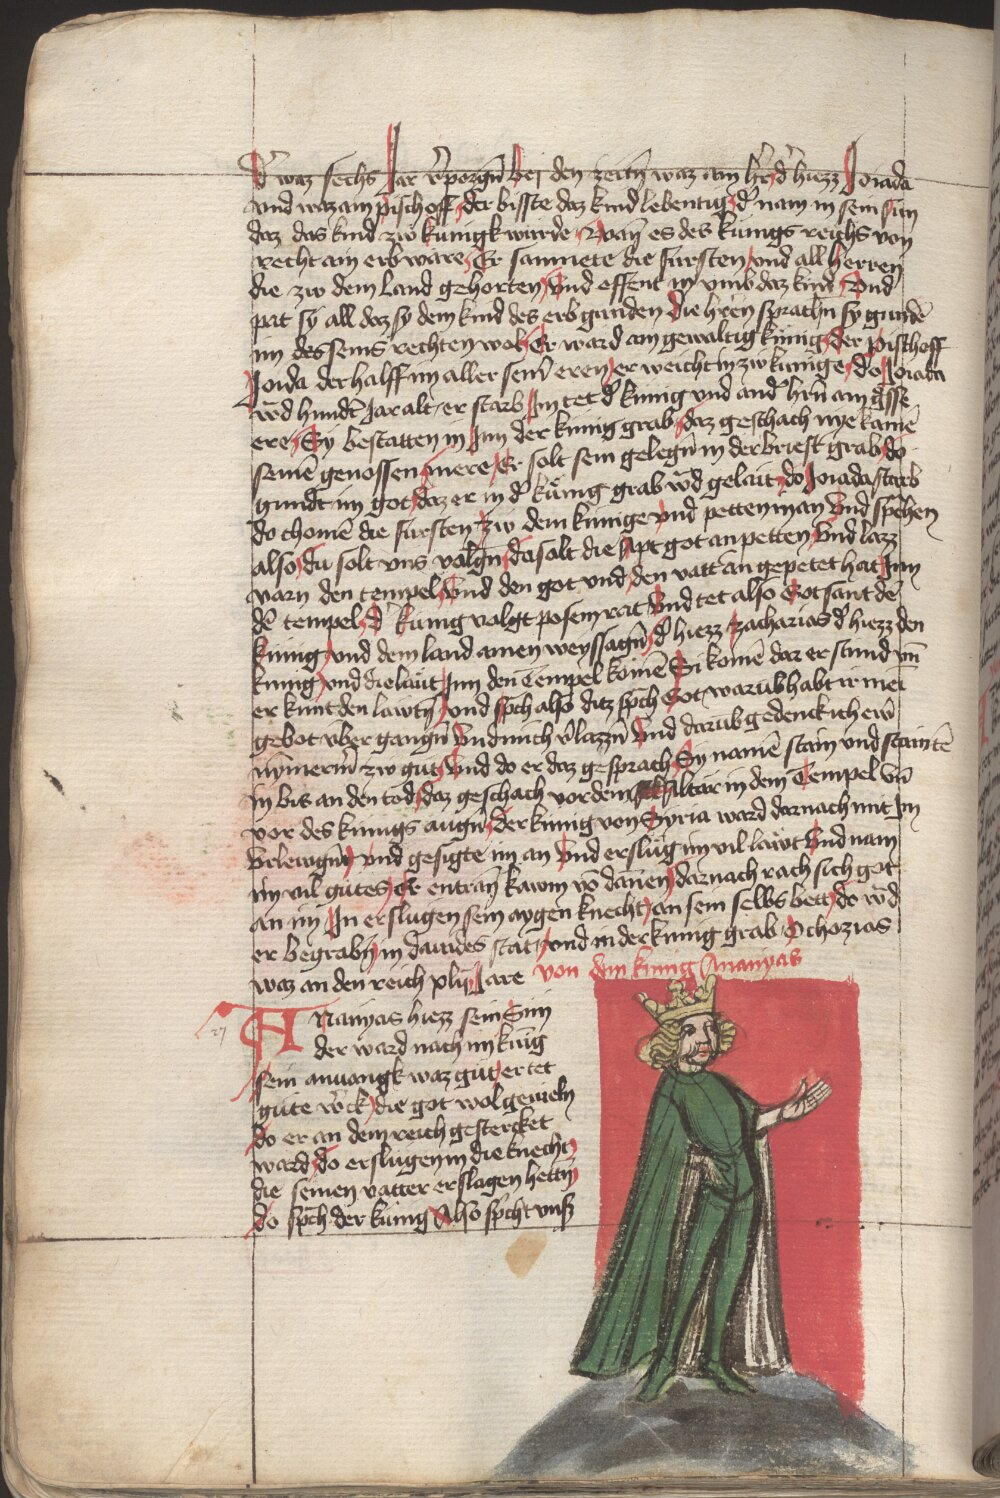 d̕ waz sechs Jar v̕porgn̄ Bei den zeitn̄ waz ain hr̄ d̕ hiezz Joiada
vnd waz ain pischoff der bisste daz kind lebentig d̕ nam in sein sin
daz das kind zw kunigk wurde Wan̄ es des kunigs reichs von
recht ain erb ware Er samnete die fursten vnd all herren
die zw dem land gehorten Vnd offent in vmb daz kind Vnd
pat sy all daz sy dem kind des erb gunden Die hr̄en sprachn̄ sy gundē
im des seins rechten wol Er ward ain gewaltig kunig der Pischoff
Joida der halff im aller seinr̄ eren er weicht in zw kunige do Joiada
wd̄ hundt̄ Jar alt er starb Im tet d̕ kunig vnd and̕ hrn̄ ain gr̊sse
ere Sy bestatten in Inn der kunig grab daz geschach nye kainē
seinē genossen mere Er solt sein gelegn̄ in der briest̕ grab do
gundt im got daz er in d̕ kunig grab wd̄ gelait do Joiada starb
do chomē die fursten zw dem kunige vnd petten in an Vnd sp̄chen
also du solt vns volgn̄ du solt die Apt got an petten Vnd lazz
varn den tempel Vnd den got vnd den vatt̕ an gepetet hat Inn
dē tempel D̕ kunig volgt posem rat Vnd tet also Got sant dē
kunig vnd dem land ainen weyssagn̄ d̕ hiezz zacharias d̕ hiezz den
kunig vnd die laut Inn den Tempel komē Si komē dar er stund vn̄
er kunt den lawtn̄ vnd sp̄ch also ditz sp̄ch Got warūb habt ir mei
gebot vber gangn̄ Vnd mich v̕lazzn̄ Vnd darūb gedenck ich ewr̄
nymerm̄ zw gut Vnd do er daz gesprach Sy namē stain vnd stainte
in bis an den tod daz geschach vor dem Altar in dem Tempel Vn̄
vor des kunigs augn̄ der kunig von Syria ward darnach mit Im
Vrlewgn̄t vnd gesigte im an Vnd erslug im vil lawt Vnd nam
im vil gutes er entran̄ kawm vō dan̄en darnach rach sich got
an im In erslugen sein aygen knecht an sein selbs bett do wd̄
er begrabn̄ in dauides stat vnd in der kunig grab Ochozias
waz an den reich plij Jare von dem kunig Ananyas
ANanyas hiezz sein Sun
der ward nach im kunig
sein anuangk waz gut er tet
gute w̕ck die got wol geuieln
do er an dem reich gestercket
ward do erslugen in die knecht
die seinen vatter erslagen hettn̄
do sp̄ch der kunig Also sp̄cht vns̕
27